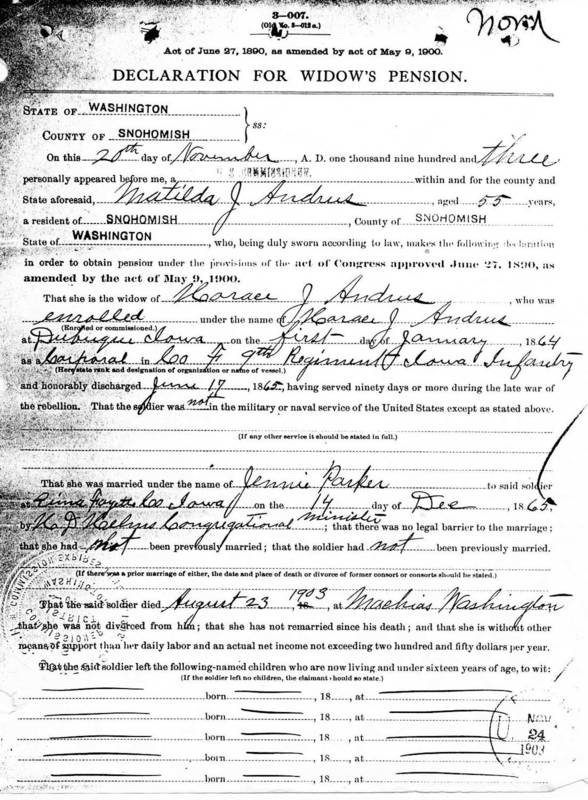 3—007.
(Old No. 3—012 a.)
Act of June 27, 1890, as amended by act of May 9, 1900.
DECLARATION FOR WIDOW'S PENSION.
STATE OF WASHINGTON
COUNTY OF SNOHOMISH } ss:
On this 20th day of November, A. D. one thousand nine hundred and three
personally appeared before me, a U S COMMISSIONER, within and for the county and
State aforesaid, Matilda J Andrus, aged 55 years,
a resident of SNOHOMISH, County of SNOHOMISH
State of WASHINGTON, who, being duly sworn according to law, makes the following declaration
in order to obtain pension under the provisions of the act of Congress approved June 27, 1890, as
amended by the act of May 9, 1900.
That she is the widow of Horace J Andrus, who was
enrolled under the name of Horace J Andrus
(Enrolled or commissioned.)
at Dubuque Iowa on the first day of January, 1864
as a Corporal in Co F 9th Regiment Iowa Infantry
(Here state rank and designation of organization or name of vessel.)
and honorably discharged June 17, 1865, having served ninety days or more during the late war of
the rebellion. That the soldier was not in the military or naval service of the United States except as stated above.
(If any other service it should be stated in full.)
That she was married under the name of Jennie Parker to said soldier
at Fayette Co Iowa, on the 14 day of Dec, 1865,
by Congregational minister; that there was no legal barrier to the marriage;
that she had not been previously married; that the soldier had not been previously married.
(If there was a prior marriage of either, the date and place of death or divorce of former consort or consorts should be stated.)
That the said soldier died August 23 1903, 18, at Machias Washington
that she was not divorced from him; that she has not remarried since his death; and that she is without other
means of support than her daily labor and an actual net income not exceeding two hundred and fifty dollars per year.
That the said soldier left the following-named children who are now living and under sixteen years of age, to wit:
(If the soldier left no children, the claimant should so state.)
born , 18 , at
born , 18 , at
born , 18 , at
born , 18 , at
born , 18 , at
U.
NOV
24
1903